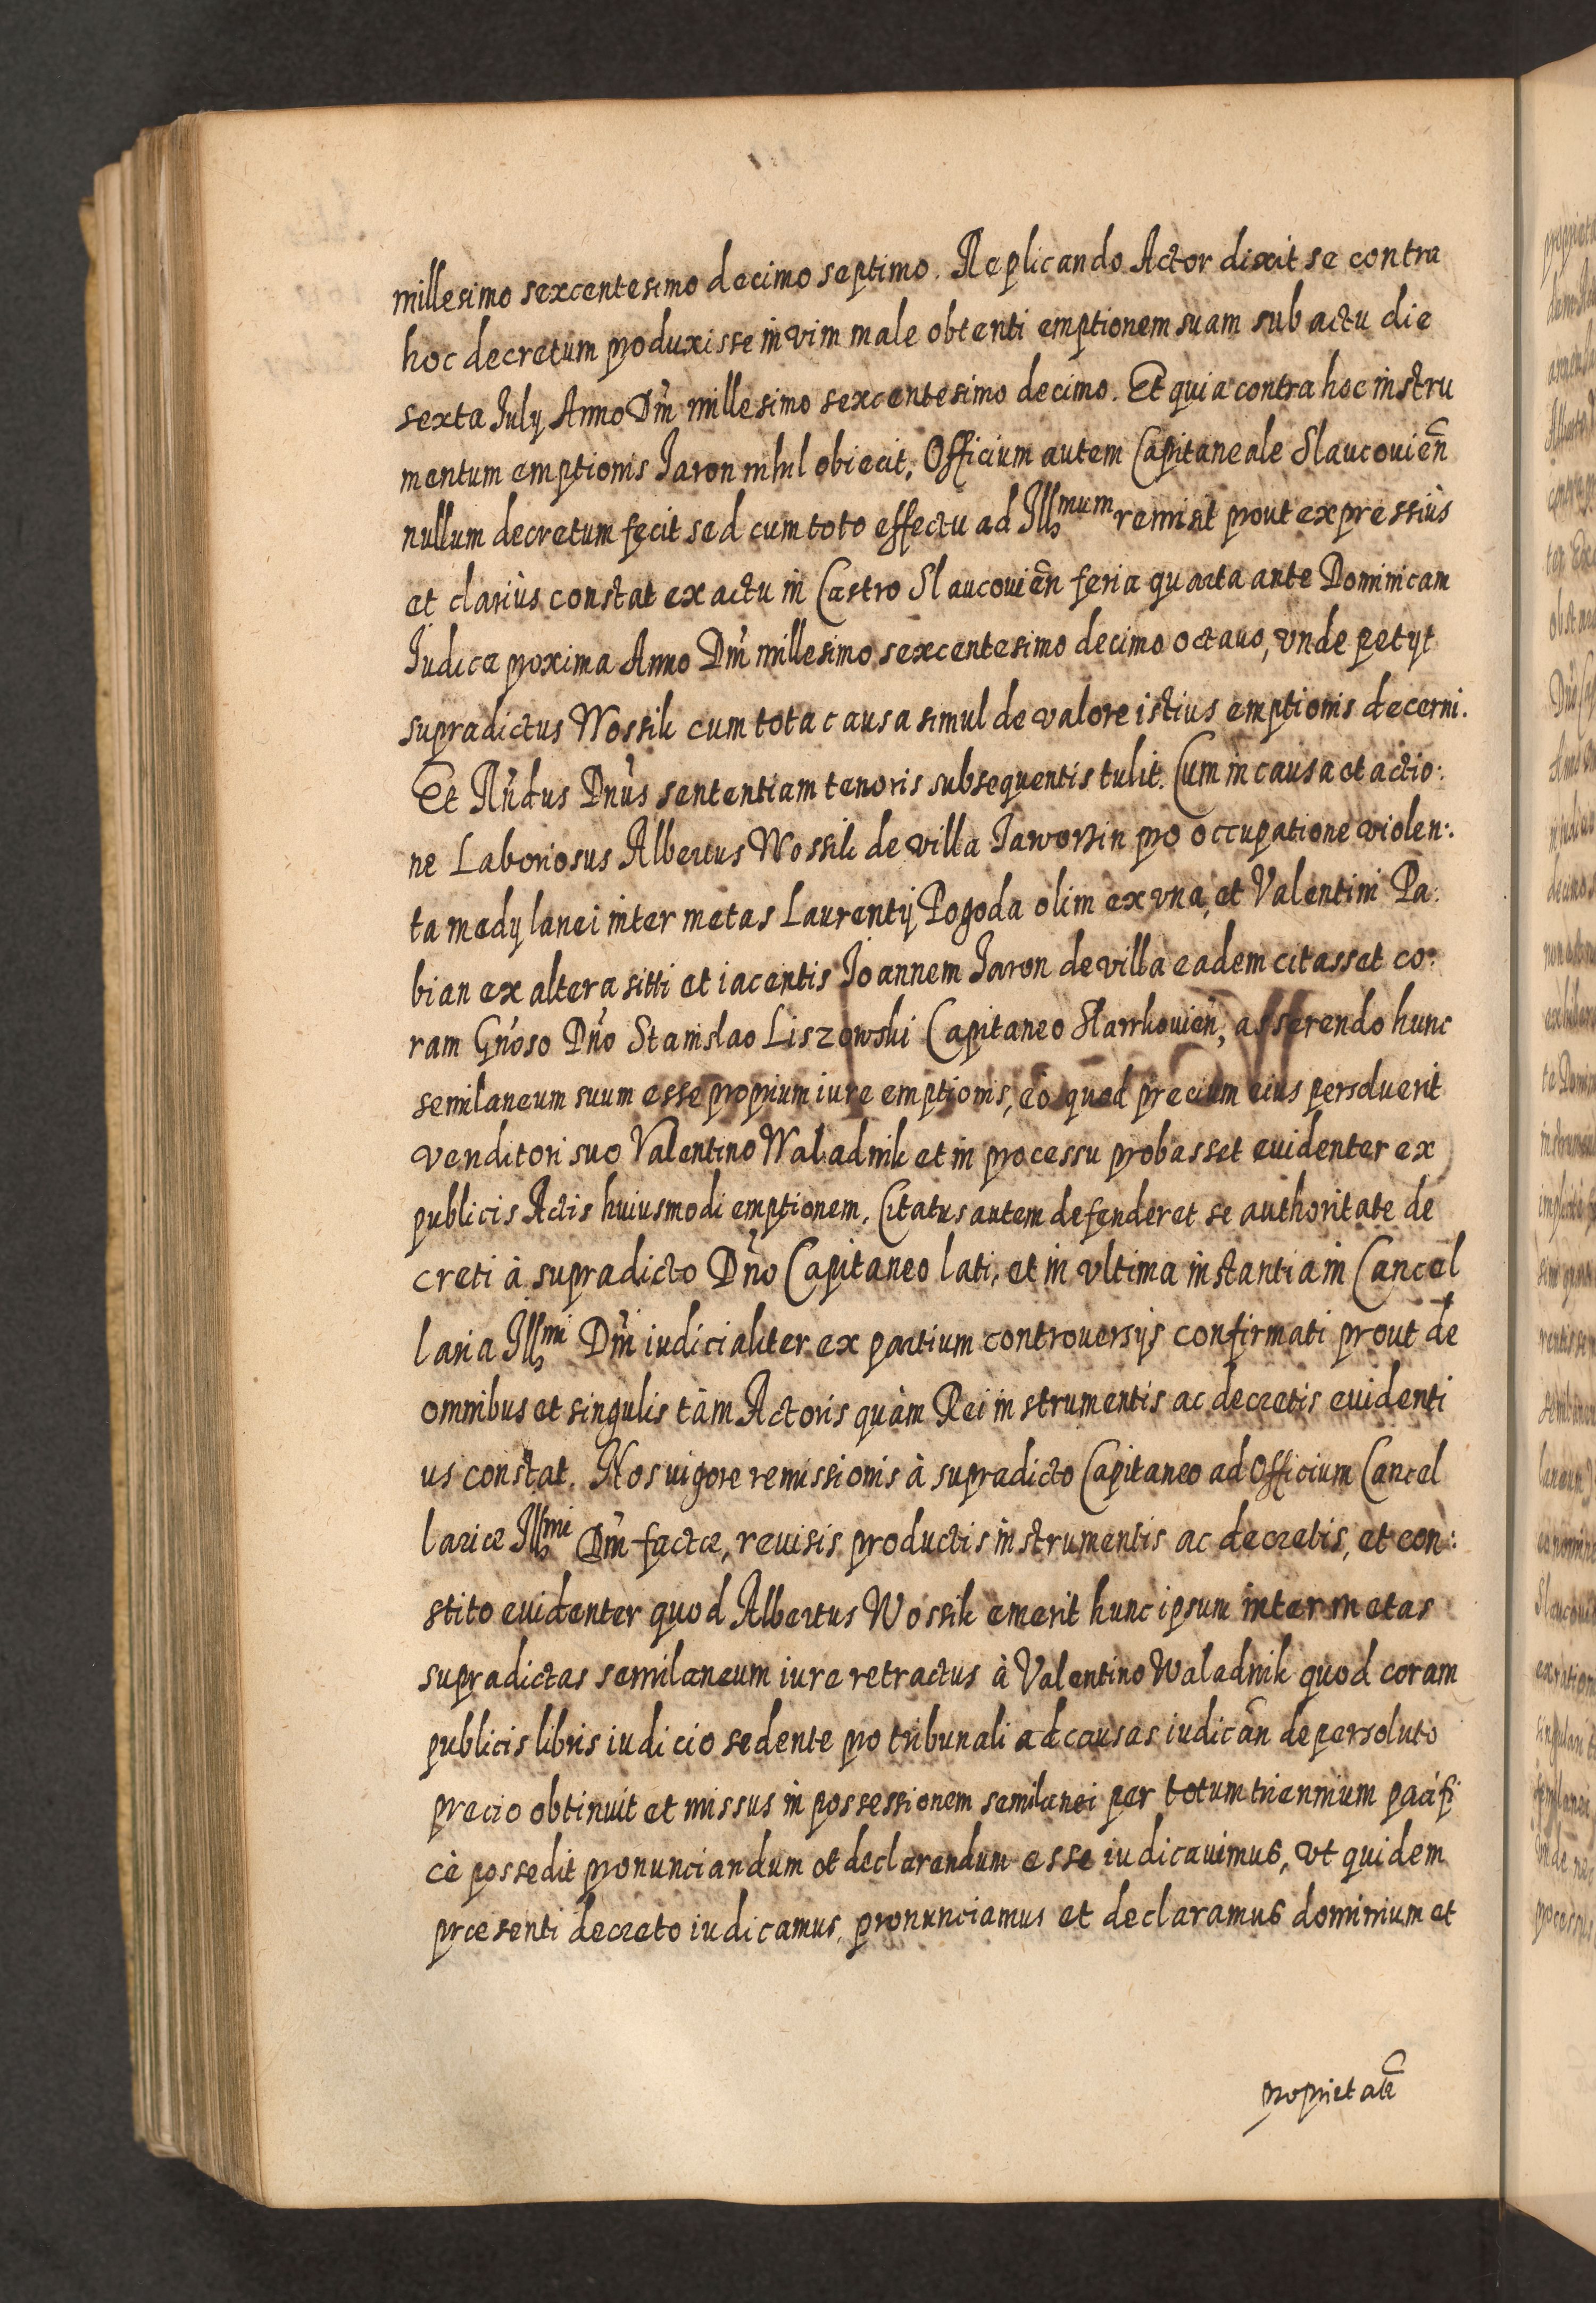 millesimo sexcentesimo decimo septimo. Replicando Actor dixit se contra
hoc decretum produxisse in vim male obtenti emptionem suam sub actu die
sexta July Anno Dni millesimo sexcentesimo decimo. Et quia contra hoc instru
mentum emptionis Jaron nihil obiecit, Officium autem Capitaneale Slaucouien
nullum decretum fecit sed cum toto effectu ad Illmum remisit prout expressiùs
et clariùs constat ex actu in Castro Slaucouien feria quarta ante Dominicam
Judica proxima Anno Dni millesimo sexcentesimo decimo octauo, vnde petyt
supradictus Wossik cum tota causa simul de valore istius emptionis decerni.
Et Rndus Dnus sententiam tenoris subsequentis tulit. Cum in causa et actio:
ne Laboriosus Albertus Wossik de villa Jaworzin pro occupatione violen:
ta medy lanei inter metas Laurentij Pogoda olim ex vna, et Valentini Pa:
bian ex altera sitti et iacentis Joannem Jaron de villa eadem citasset co:
ram Gnoso Dno Stanislao Liszowski Capitaneo Slawkouien, asserendo hunc
semilaneum suum esse proprium iure emptionis, eò quod precium eius persoluerit
venditori suo Valentino Waladnik et in processu probasset euidenter ex
publicis Actis huiusmodi emptionem, Citatus autem defenderet se authoritate de
creti à supradicto Dno Capitaneo lati, et in vltima instantia in Cancel
laria Illmi Dni iudicialiter ex partium controuersijs confirmati prout de
omnibus et singulis tàm Actoris quàm Rei instrumentis ac decretis euidenti
us constat. Nos uigore remissionis à supradicto Capitaneo ad Officium Cancel
lariæ Illmi Dni factæ, reuisis productis instrumentis ac decretis, et con:
stito euidenter quod Albertus Wossik emerit hunc ipsum inter metas
supradictas semilaneum iure retractus à Valentino Waladnik quod coram
publicis libris iudicio sedente pro tribunali ad causas iudican de persoluto
precio obtinuit et missus in possessionem semilanei per totum triennium pacifi
cè possedit pronunciandum et declarandum esse iudicauimus, vt quidem
præsenti decreto iudicamus, pronunciamus et declaramus dominium et
proprietate